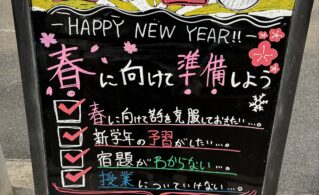 HAPPY NEW YEAR!!
春に向けて準備しよう
春に向けて苦手を克服しておきたい…。
新学年の予習がしたい…。
宿題がわからない…。
授業についていけない…。